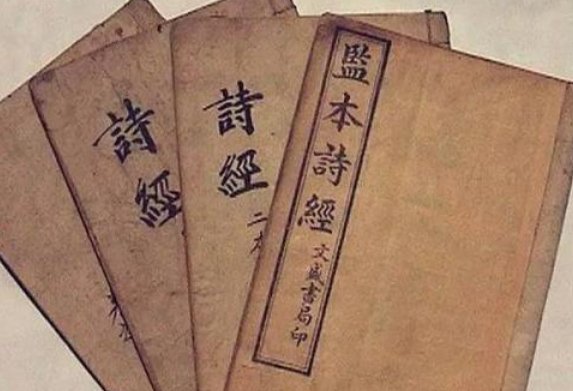 監本詩經 文盛書局印
詩經
二本
詩經